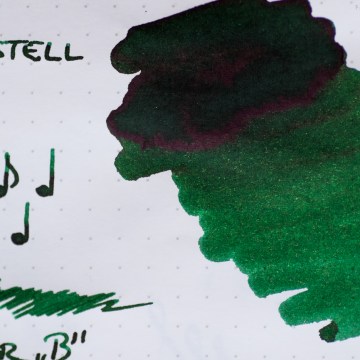 STELL
R „B"